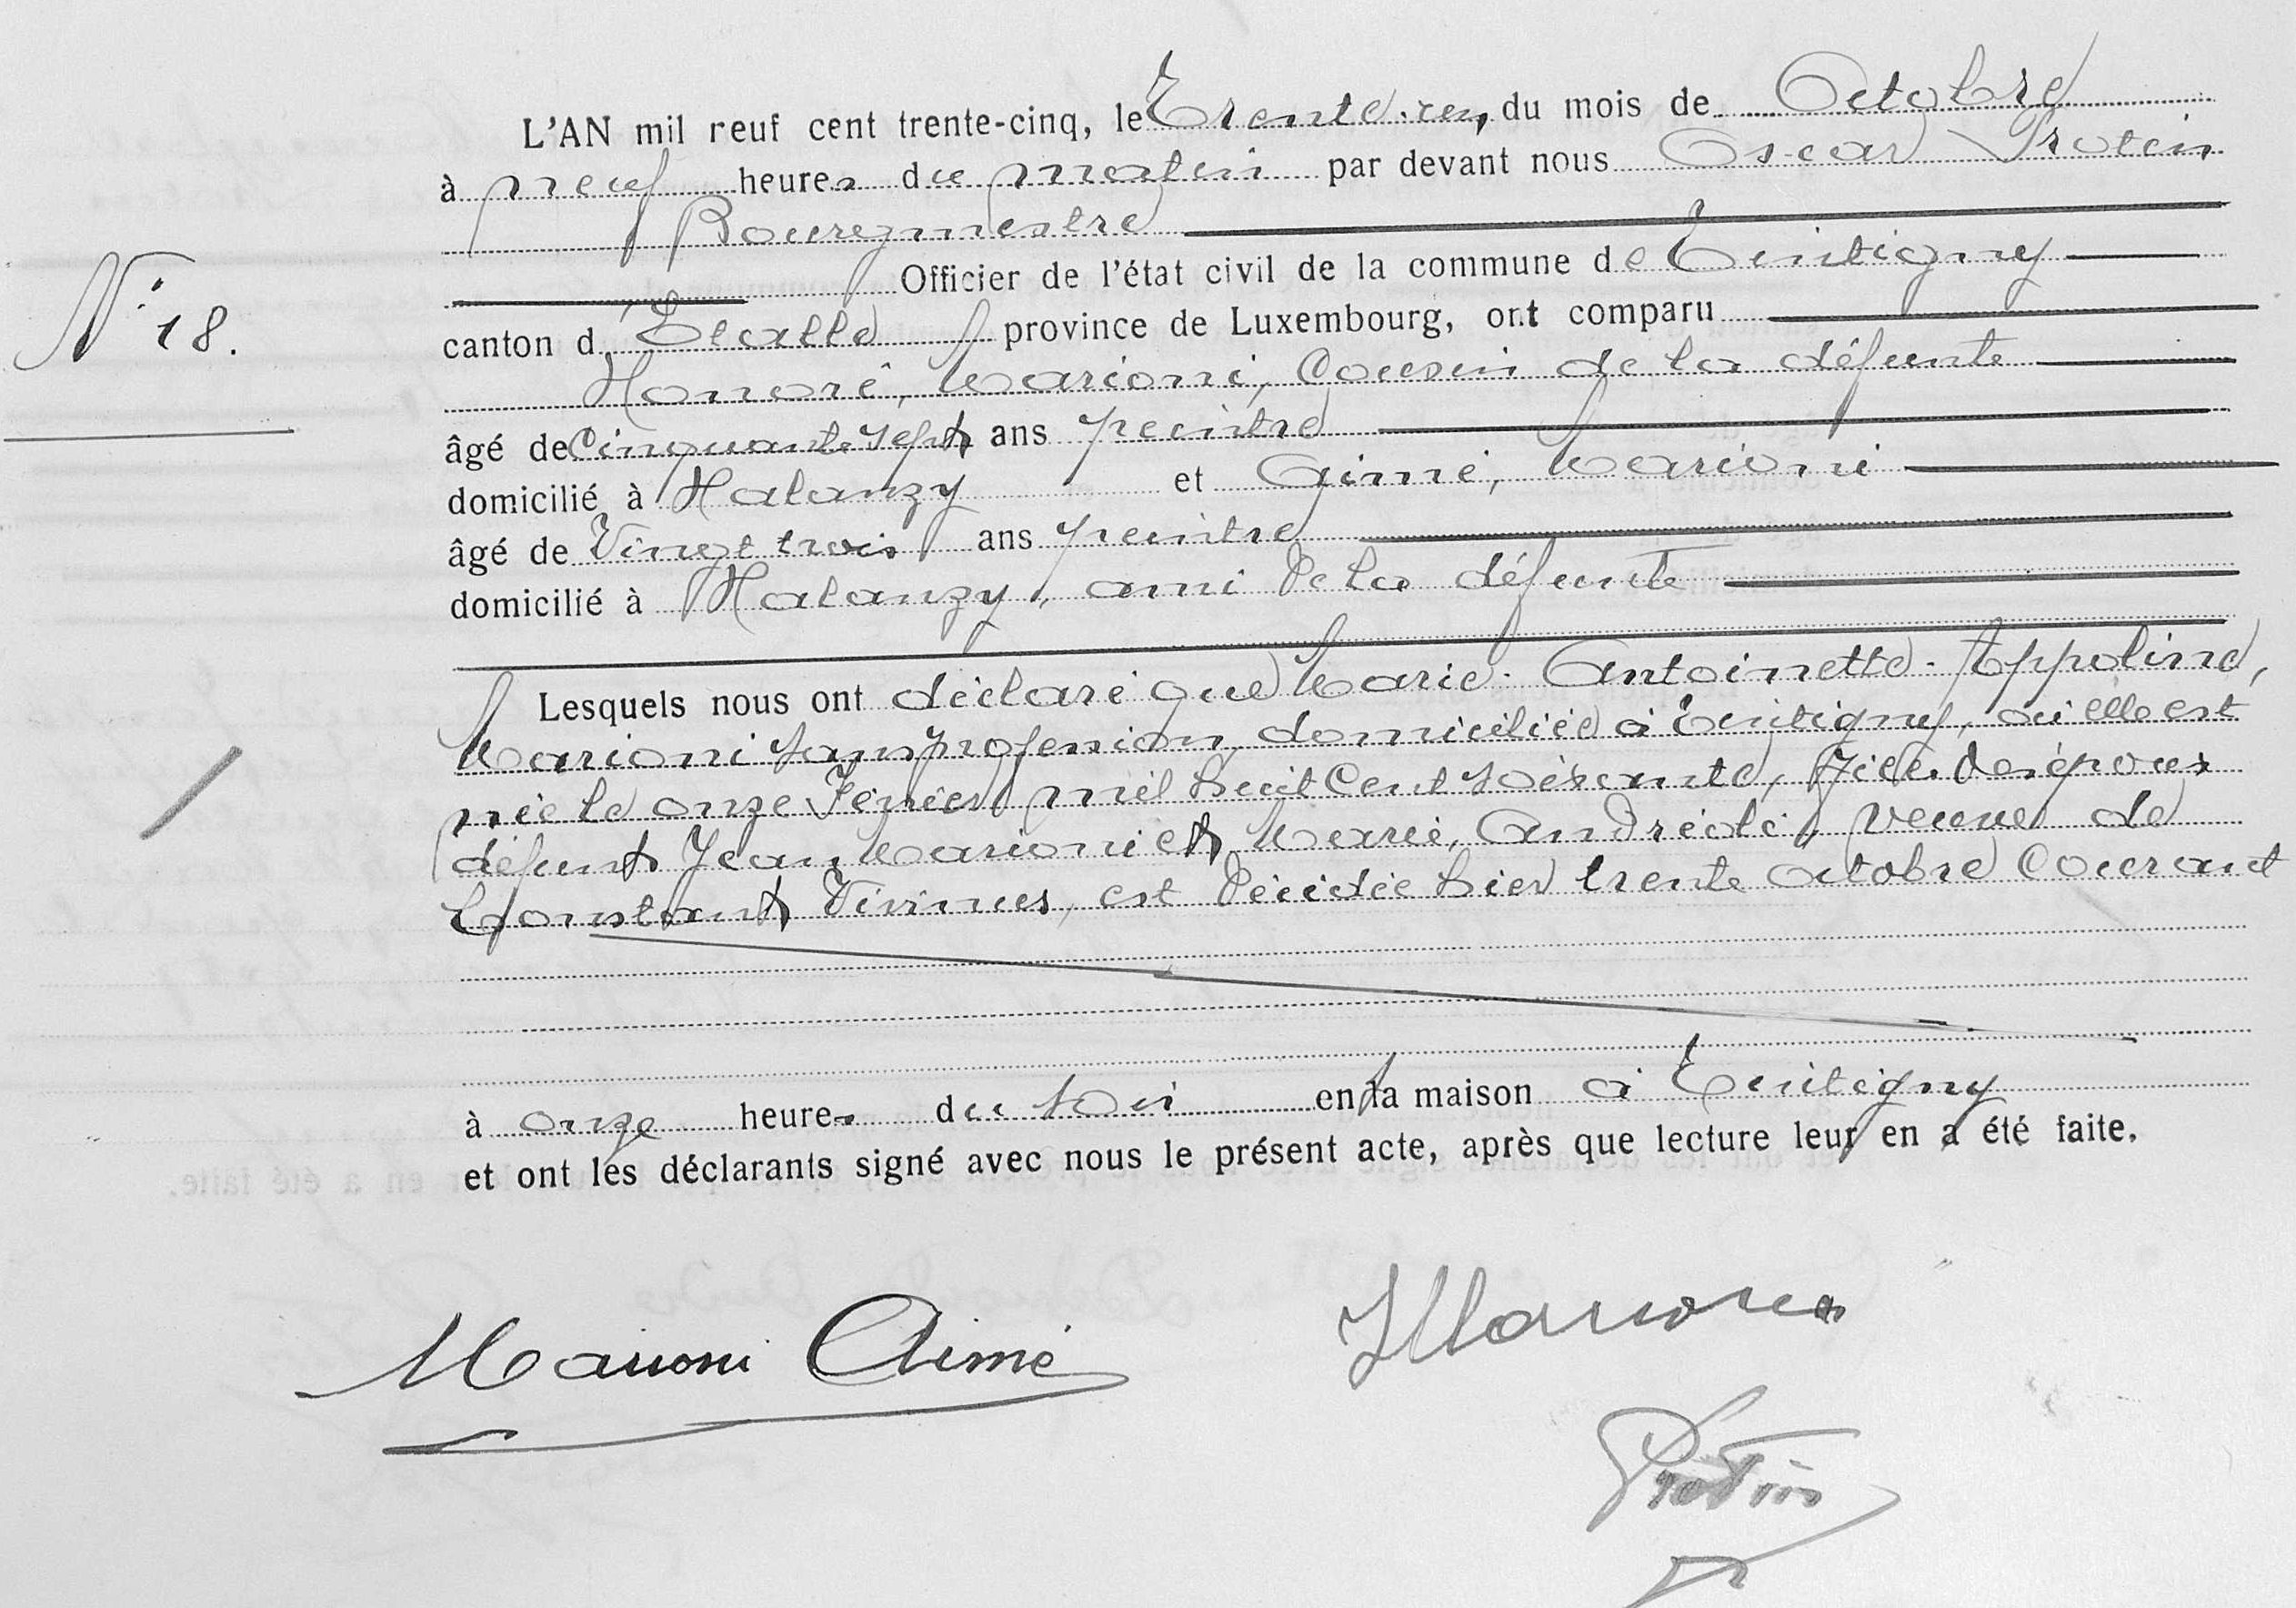 L'AN mil neuf cent trente-cinq, le Trente-un, du mois de Octobre
à neuf heures du matin par devant nous Oscar Protin
Bourgmestre
Officier de l'état civil de la commune de Tintigny
N° 18.
canton d'Etalle province de Luxembourg, ont comparu
Honoré, Marioni, Cousin de la défunte
âgé de Cinquante sept ans peintre
domicilié à Halanzy et Aimé, Marioni
âgé de Vingt trois ans peintre
domicilié à Halanzy, ami de la défunte
Lesquels nous ont déclaré que Marie-Antoinette-Appoline,
Marioni sans profession, domiciliée à Tintigny, où elle est
née le onze Février mil huit Cent soixante, fille des époux
défunts Jean Marioni et Marie, Andréoli, veuve de
Constant Virinus, est décédée hier trente octobre Courant
à onze heures du soir en sa maison à Tintigny
et ont les déclarants signé avec nous le présent acte, après que lecture leur en a été faite.
Marioni Aimé
HMarioni
Protin